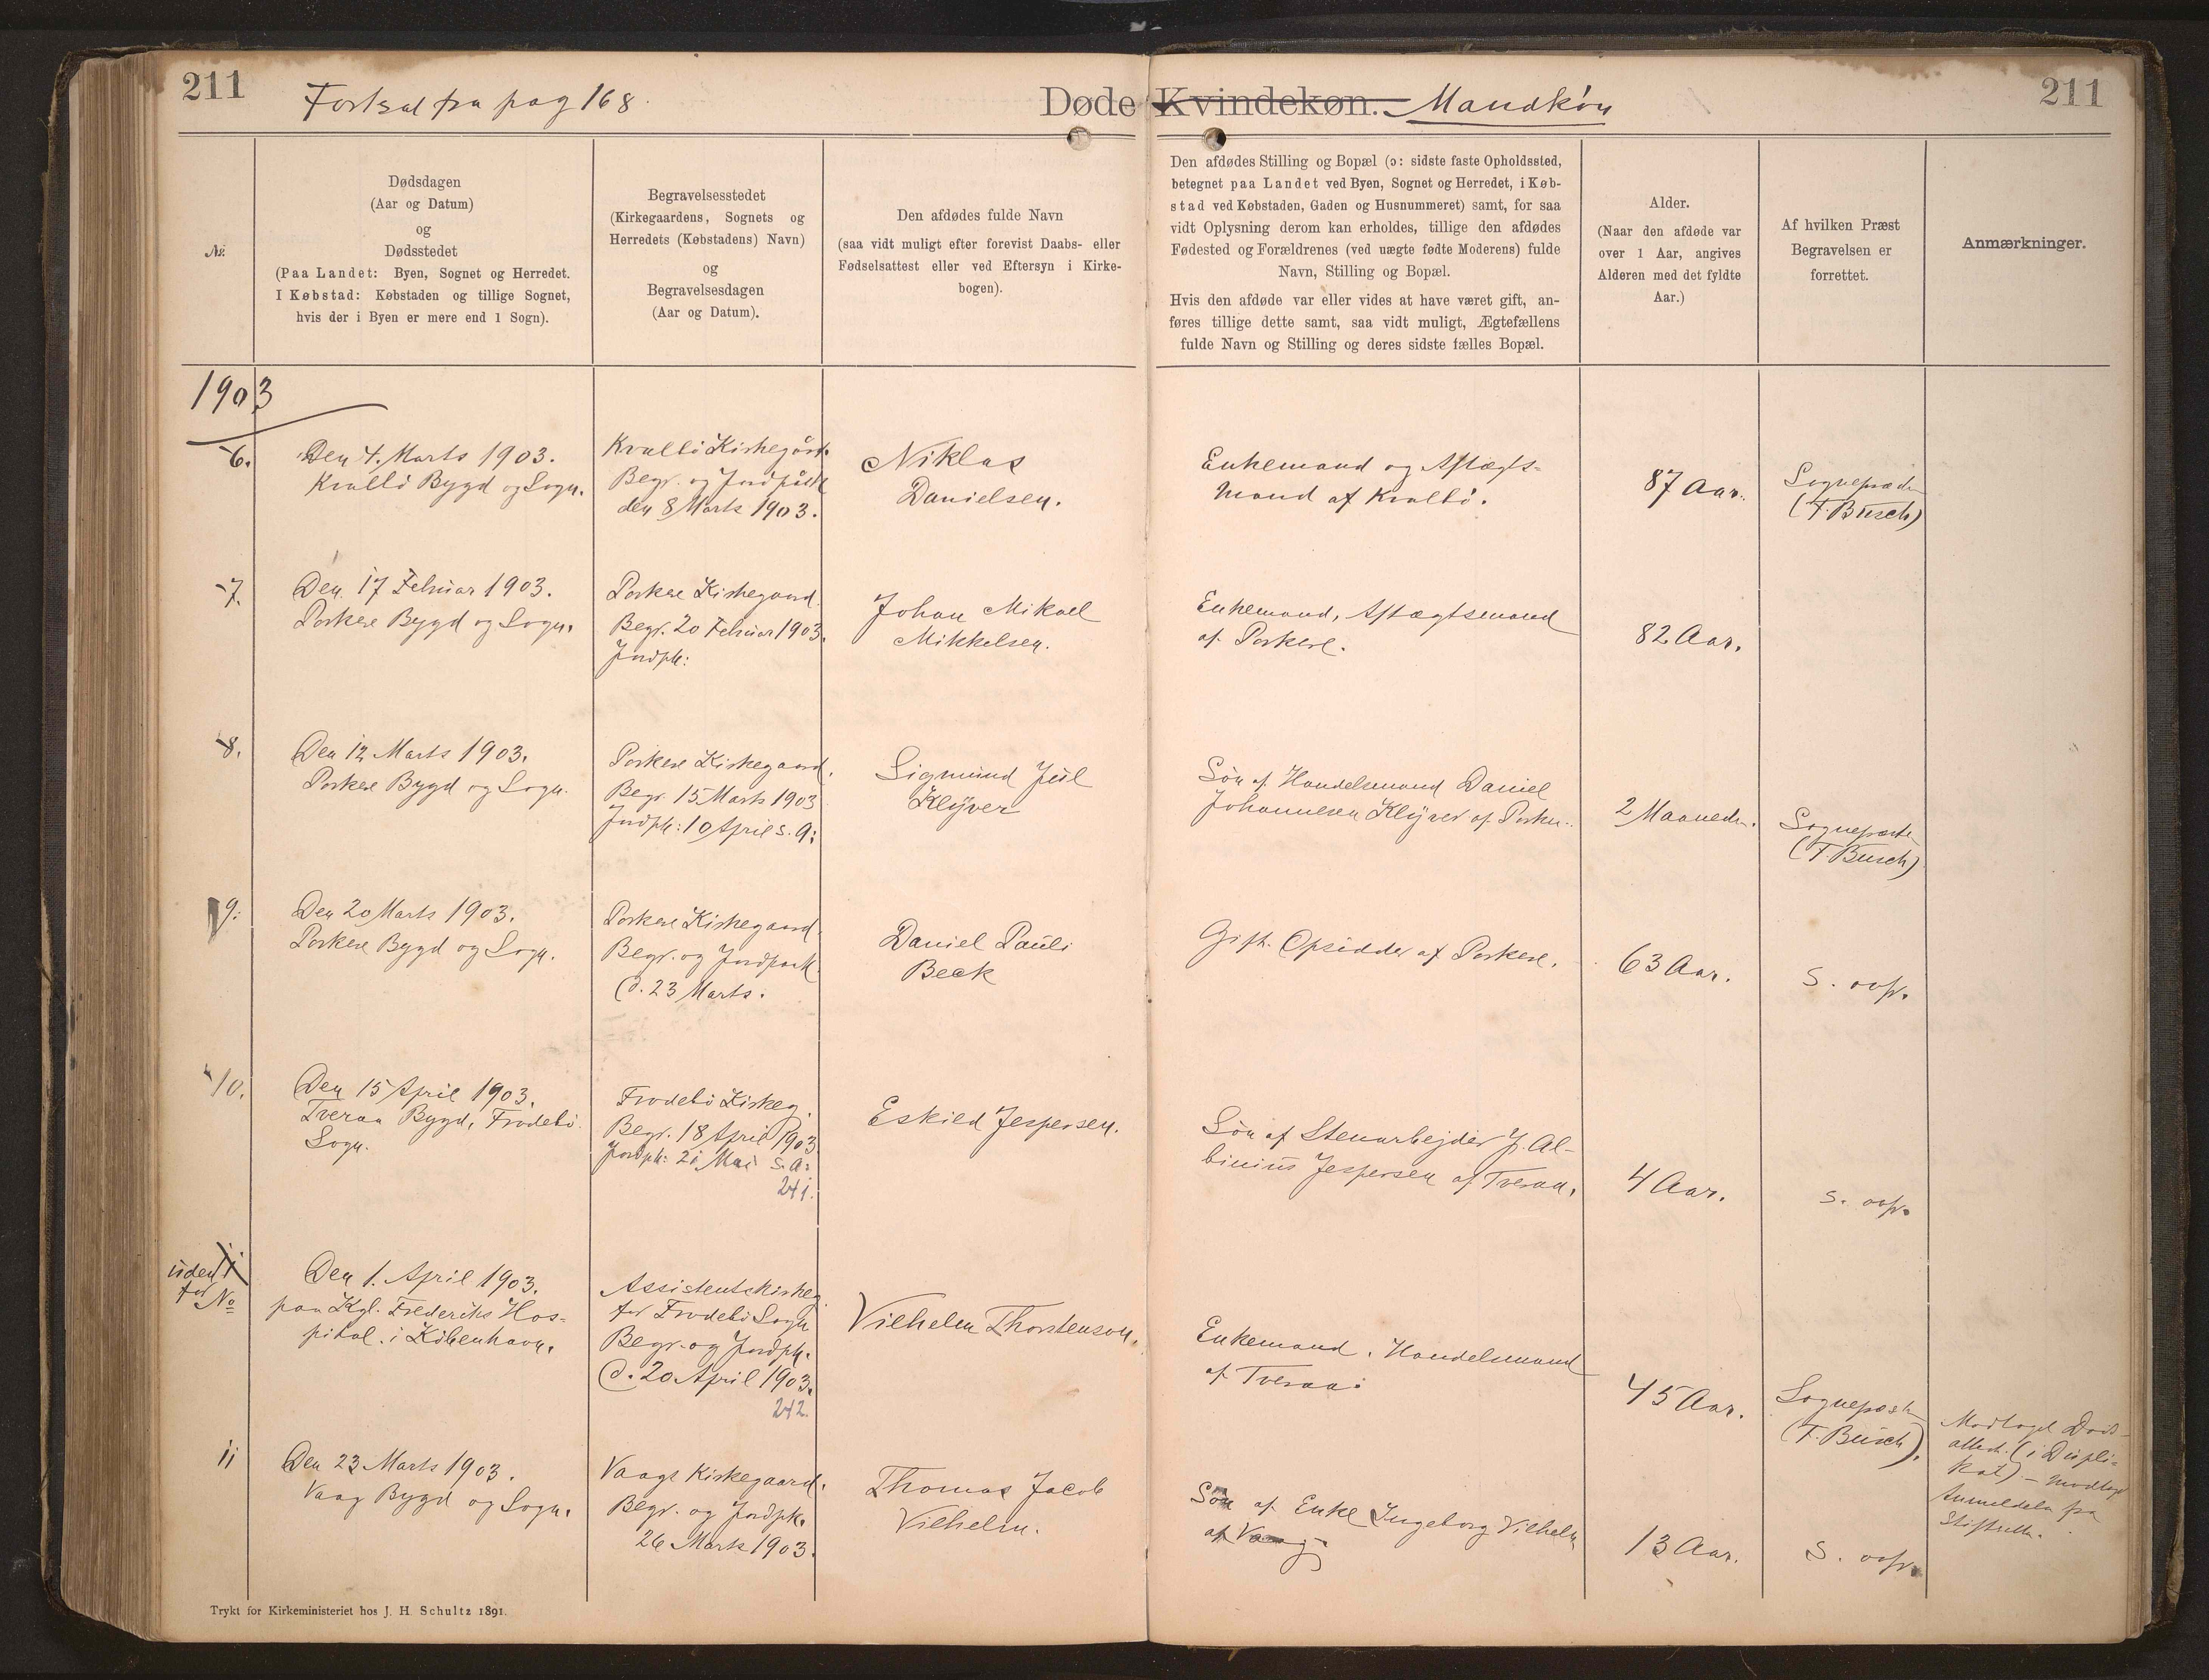 211
Fortsat fra pag 168.
Døde Kvindekøn. Mandkøn
211
№.
Dødsdagen
(Aar og Datum)
og
Dødsstedet
(Paa Landet: Byen, Sognet og Herredet.
I Købstad: Købstaden og tillige Sognet,
hvis der i Byen er mere end 1 Sogn).
Begravelsesstedet
(Kirkegaardens, Sognets og
Herredets (Købstadens) Navn)
og
Begravelsesdagen
(Aar og Datum).
Den afdødes fulde Navn
(saa vidt muligt efter forevist Daabs- eller
Fødselsattest eller ved Eftersyn i Kirke-
bogen).
Den afdødes Stilling og Bopæl (ɔ: sidste faste Opholdssted,
betegnet paa Landet ved Byen, Sognet og Herredet, i Køb-
stad ved Købstaden, Gaden og Husnummeret) samt, for saa
vidt Oplysning derom kan erholdes, tillige den afdødes
Fødested og Forældrenes (ved uægte fødte Moderens) fulde
Navn, Stilling og Bopæl.
Hvis den afdøde var eller vides at have været gift, an-
føres tillige dette samt, saa vidt muligt, Ægtefællens
fulde Navn og Stilling og deres sidste fælles Bopæl.
Alder.
(Naar den afdøde var
over 1 Aar, angives
Alderen med det fyldte
Aar.)
Af hvilken Præst
Begravelsen er
forrettet.
Anmærkninger.
1903
6.
Den 4. Marts 1903.
Kvalbö Bygd og Sogn.
Kvalbö Kirkegård.
Begr. og Jordpåk
den 8 Marts 1903.
Niklas
Danielsen.
Enkemand og Aftægts-
mand af Kvalbö.
87 Aar.
Sognepræsten
(F. Busch)
7.
Den 17 Februar 1903.
Porkere Bygd og Sogn.
Porkere Kirkegaard.
Begr. 20 Februar 1903.
Jordpk:
Johan Mikael
Mikkelsen.
Enkemand, Aftægtsmand
af Porkere.
82 Aar.
8.
Den 12 Marts 1903.
Porkere Bygd og Sogn.
Porkere Kirkegaard.
Begr. 15 Marts 1903
Jordpk: 10 April s. a:
Sigmund Jül
Klÿver
Sön af Handelsmand Daniel
Johannesen Klÿver af Porkere.
2 Maaneder.
Sognepræsten
(F. Busch)
9.
Den 20 Marts 1903.
Porkere Bygd og Sogn.
Porkere Kirkegaard.
Begr. og Jordpaak
d. 23 Marts.
Daniel Pauli
Beck
Gift. Opsidder af Porkere.
63 Aar.
S. ovfr.
10.
Den 15 April 1903.
Tveraa Bygd, Frodebö
Sogn.
Frodebö Kirkeg.
Begr. 18 April 1903
Jordpk: 21 Mai s. a:
241.
Eskild Jespersen.
Sön af Stenarbejder J. Al-
binius Jespersen af Tveraa.
4 Aar.
s. ovfr.
uden 11
for No
Den 1. April 1903.
paa Kgl. Frederiks Hos-
pital i Köbenhavn.
Assistentskirkeg
for Frodebö Sogn
Begr. og Jordpk.
d. 20 April 1903.
242.
Vilhelm Thorstenson.
Enkemand. Handelsmand
af Tveraa.
45 Aar.
Sognepræsten
(F. Busch).
Modtaget Döds-
attest. (i Dupli-
kat) – modtaget
Anmeldelse fra
11
Den 23 Marts 1903.
Vaag Bygd og Sogn.
Vaags Kirkegaard.
Begr. og Jordpk.
26 Marts 1903.
Thomas Jacob
Vilhelm.
Sön af Enke Ingeborg Vilhelm
af Vaag.
13 Aar.
S. ovfr.
Trykt for Kirkeministeriet hos J. H. Schultz 1891.